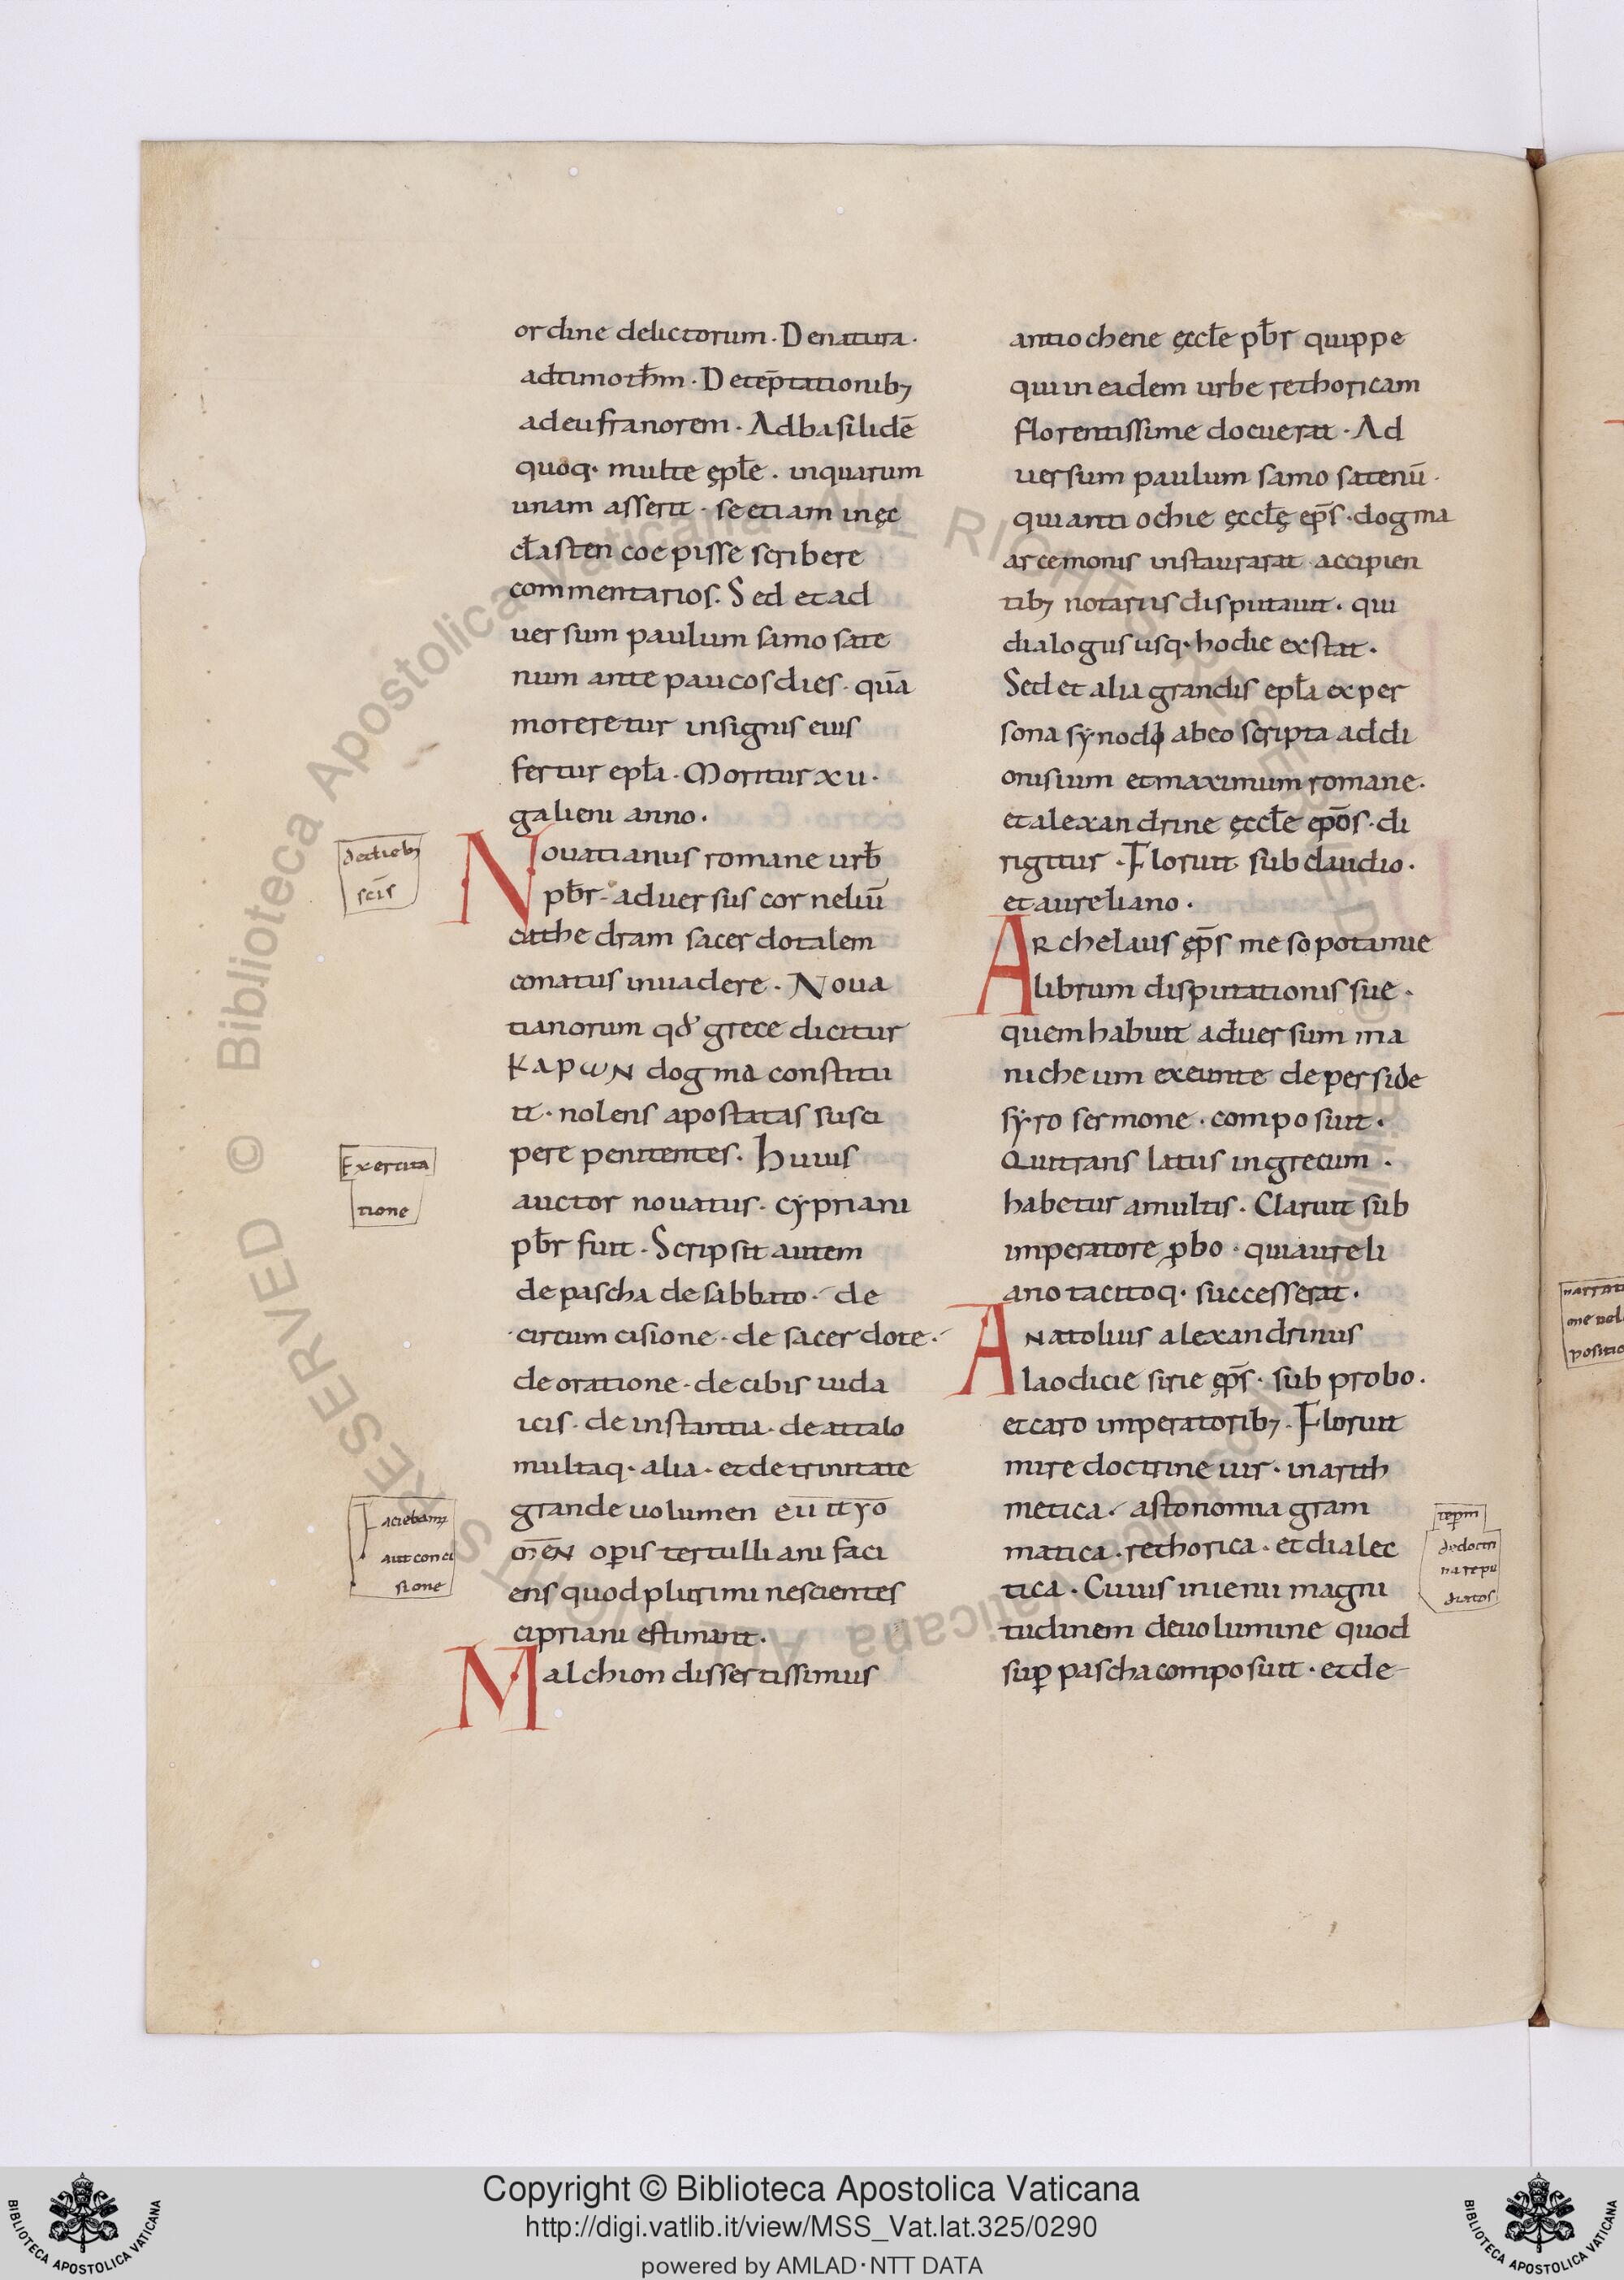 ordine delictorum · De natura ·
ad timoth̄m · De tep̄tationibꝫ
ad eufranorem · Ad basilidē
quoq · multe ępłe · in quarum
unam asserit · se etiam in ęc
cłasten coepisse scribere
commentarios · Sed et ad
uersum paulum samosate
num ante paucos dies · quā
moreretur insignis eius
fertur epła · Moritur xu ·
galieni anno ·
Nouatianus romane urb̄
pb̄r · aduersus corneliū
cathedram sacerdotalem
conatus inuadere · Noua
tianorum qđ grece dicitur
ΚΑΡωN dogma constitu
it · nolens apostatas susci
pere penitentes · Huius
auctor nouatus · cẏpriani
pb̄r fuit · Scripsit autem
de pascha de sabbato · de
circumcisione · de sacerdote ·
de oratione · de cibis iuda
icis · de instantia · de attalo
multaq · alia · et de trinitate
grande uolumen
operis tertulliani faci
ens quod plurimi nescientes
cipriani estimant ·
Malchion dissertissimus
dedieb
scīs
Exercita
tione
aut conci
sione
antiochene ęccłe pb̄r quippe
qui in eadem urbe rethoricam
florentissime docuerat · Ad
uersum paulum samosatenū ·
qui antiochie ęccłę ep̄s · dogma
arcemonis instaurarat accipien
tibꝫ notariis disputauit · qui
dialogus usq · hodie exstat ·
Sed et alia grandis epła ex per
sona sẏnodi ab eo scripta ad di
onisium et maximum romane ·
et alexandrine ęccłe ep̄os · di
rigitur · Floruit sub claudio ·
et aureliano ·
Archelaus ęp̄s mesopotamie
librum disputationis sue ·
quem habuit aduersum ma
nicheum exeunte de perside
sẏro sermone · composuit ·
Qui translatus in grecum ·
habetur a multis · Claruit sub
imperatore ꝓbo · qui aureli
ano tacitoq · successerat ·
Anatolius alexandrinus
laodicie sirie ęp̄s · sub probo ·
et caro imperatoribꝫ · Floruit
mire doctrine uir · in arith
metica · astonomia gram
matica · rethorica · et dialec
tica · Cuius inienii magni
tudinem de uolumine quod
suꝑ pascha composuit · et de
dedoctri
narepu
diatos
Copyright © Biblioteca Apostolica Vaticana
http://digi.vatlib.it/view/MSS_Vat.lat.325/0290
powered by AMLAD·NTT DATA
BIBLIOTECA APOSTOLICA VATICANA
BIBLIOTECA APOSTOLICA VATICANA